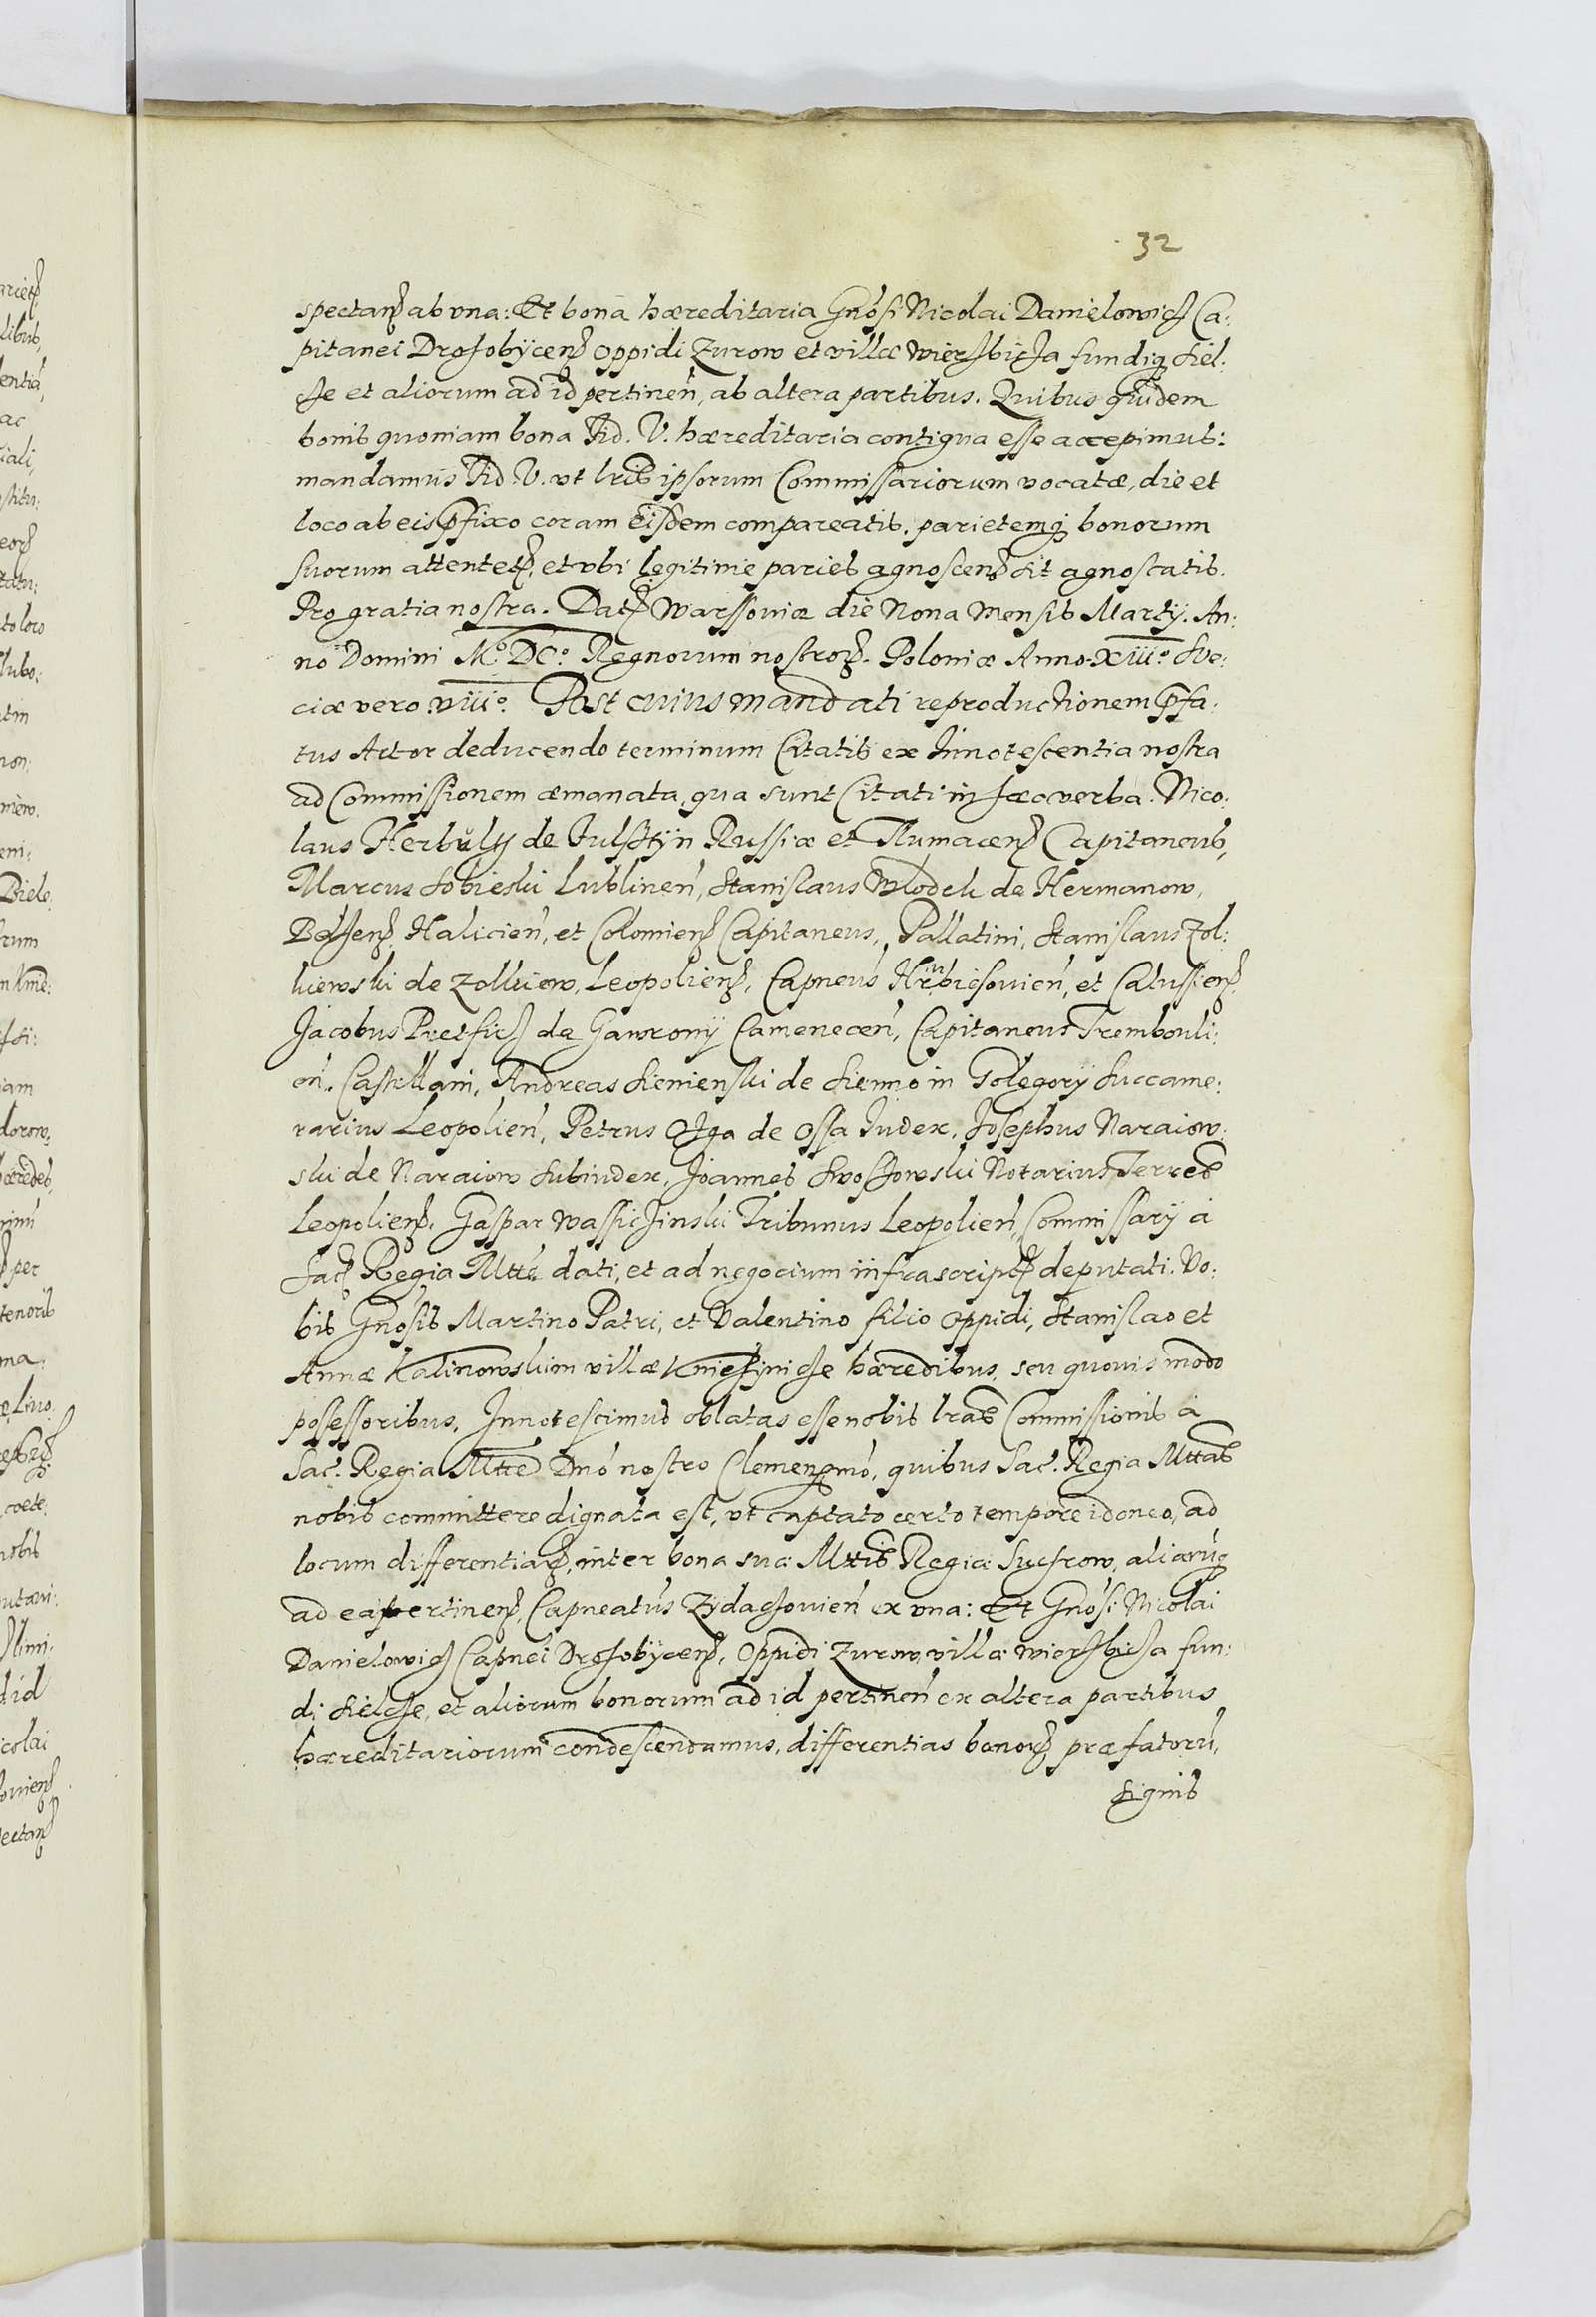 32
spectanꝭ ab vna: Et bona hæreditaria Gnosi Nicolai Danielowicz Ca:
pitanei Drohobÿcenꝭ oppidi Zurow et villæ Wierzbicza fundiq̨ Siel:
cze et aliorum ad id pertineń, ab altera partibus. Quibus quidem
bonis quoniam bona Fid. V. hæreditaria contigua esse accepimus:
mandamus Fid V. vt lris ipsorum Commissariorum vocatæ, die et
loco ab eis p̃fixo coram eisdem compareatis. parietemq̨ bonorum
suorum attentetꝭ, et vbi legitime paries agnoscenꝭ sit agnoscatis.
Pro gratia nostra. Datꝭ Warssoviæ die Nona Mensis Martÿ. An:
no Domini M.º DCº. Regnorum nostroꝝ. Poloniæ Anno. XIIIº. Sve:
ciæ vero. VIIº. Post cuius mandati reproductionem p̃fa:
tus Actor deducendo terminum Citatis ex Innotescentia nostra
ad Commissionem æmanata, qua sunt Citati in hæc verba. Nico:
laus Herbult de Fulsztÿn Russiæ et Tlumacenꝭ Capitaneus,
Marcus Sobieski Lublineń, Stanislaus Wlodek de Hermanow,
Belzenꝭ Halicień, et Colomienꝭ Capitaneus, Pallatini, Stanislaus Zol:
kiewski de Zolkiew, Leopolienꝭ, Capneus Hrubiessovień, et Calussienꝭ
Jacobus Pretficz de Gawronÿ Cameneceń, Capitaneus Trembouli:
eń. Castellani, Andreas Sienienski de Sienno in Gologorÿ Succame:
rarius Leopolień, Petrus Ożga de Ossa Iudex, Josephus Naraiow:
ski de Naraiow Subiudex, Joannes Swoszowski Notarius Terres
Leopolienꝭ. Gaspar Wassiczinski Tribunus Leopolień, Commissarÿ a
Sacꝭ Regia Mtte dati, et ad negocium infrascriptꝭ deputati. Vo:
bis Gnosis Martino Patri, et Valentino filio oppidi, Stanislao et
Annæ Kalinowskim villæ Kniehinicze hæredibus, seu quouis modo
possessoribus, Innotescimus oblatas esse nobis lras Commissionis a
Sac. Regia Mtte Dnó nostro Clemenꝭmó, quibus Sac. Regia Mttas
nobis committere dignata est, vt captato certo tempore idoneo, ad
locum differentiaꝝ, inter bona suæ Mttis Regiæ Suchrow, aliarúq̨
ad ea pertinenꝭ, Capneatus Zydaczovień ex vna: Et Gnosi Nicolai
Danielowicz Capnei Drohobÿcenꝭ, Oppidi Zurow, villæ Wierzbicza fun:
di Sielcze, et aliorum bonorum ad id pertineń ex altera partibus
hæreditariorum condescendamus, differentias bonoꝝ præfatorú,
signis